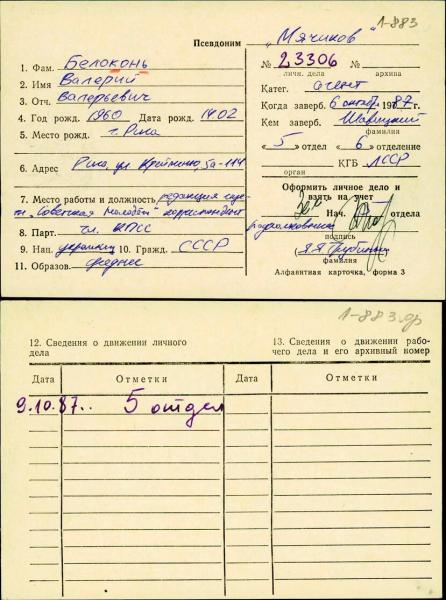 1-883
Псевдоним „Мячиков"
№ 23306 №
личн. дела архива
1. Фам. Белоконь
2. Имя Валерий
3. Отч. Валерьевич
4. Год рожд. 1960 Дата рожд. 14.02
5. Место рожд. г. Рига
6. Адрес Рига, ул. 5а-114
7. Место работы и должность редакция
„Советская молодёжь" корреспондент
8. Парт. чл. КПСС
9. Нац. украинец 10. Гражд. СССР
11. Образов. среднее
Катег. агент
Когда заверб. 6 октября 1987 г.
Кем заверб.
фамилия
«5» отдел «6» отделение
КГБ ЛССР
орган
Оформить личное дело и
взять на учет
Зам. Нач. 5 отдела
подполковник
подпись
(Я.Я. Трубиньш)
фамилия
Алфавитная карточка, форма 3
1-883.др
12. Сведения о движении личного
дела
13. Сведения о движении рабо-
чего дела и его архивный номер
Дата Отметки Дата Отметки
9.10.87.. 5 отдел